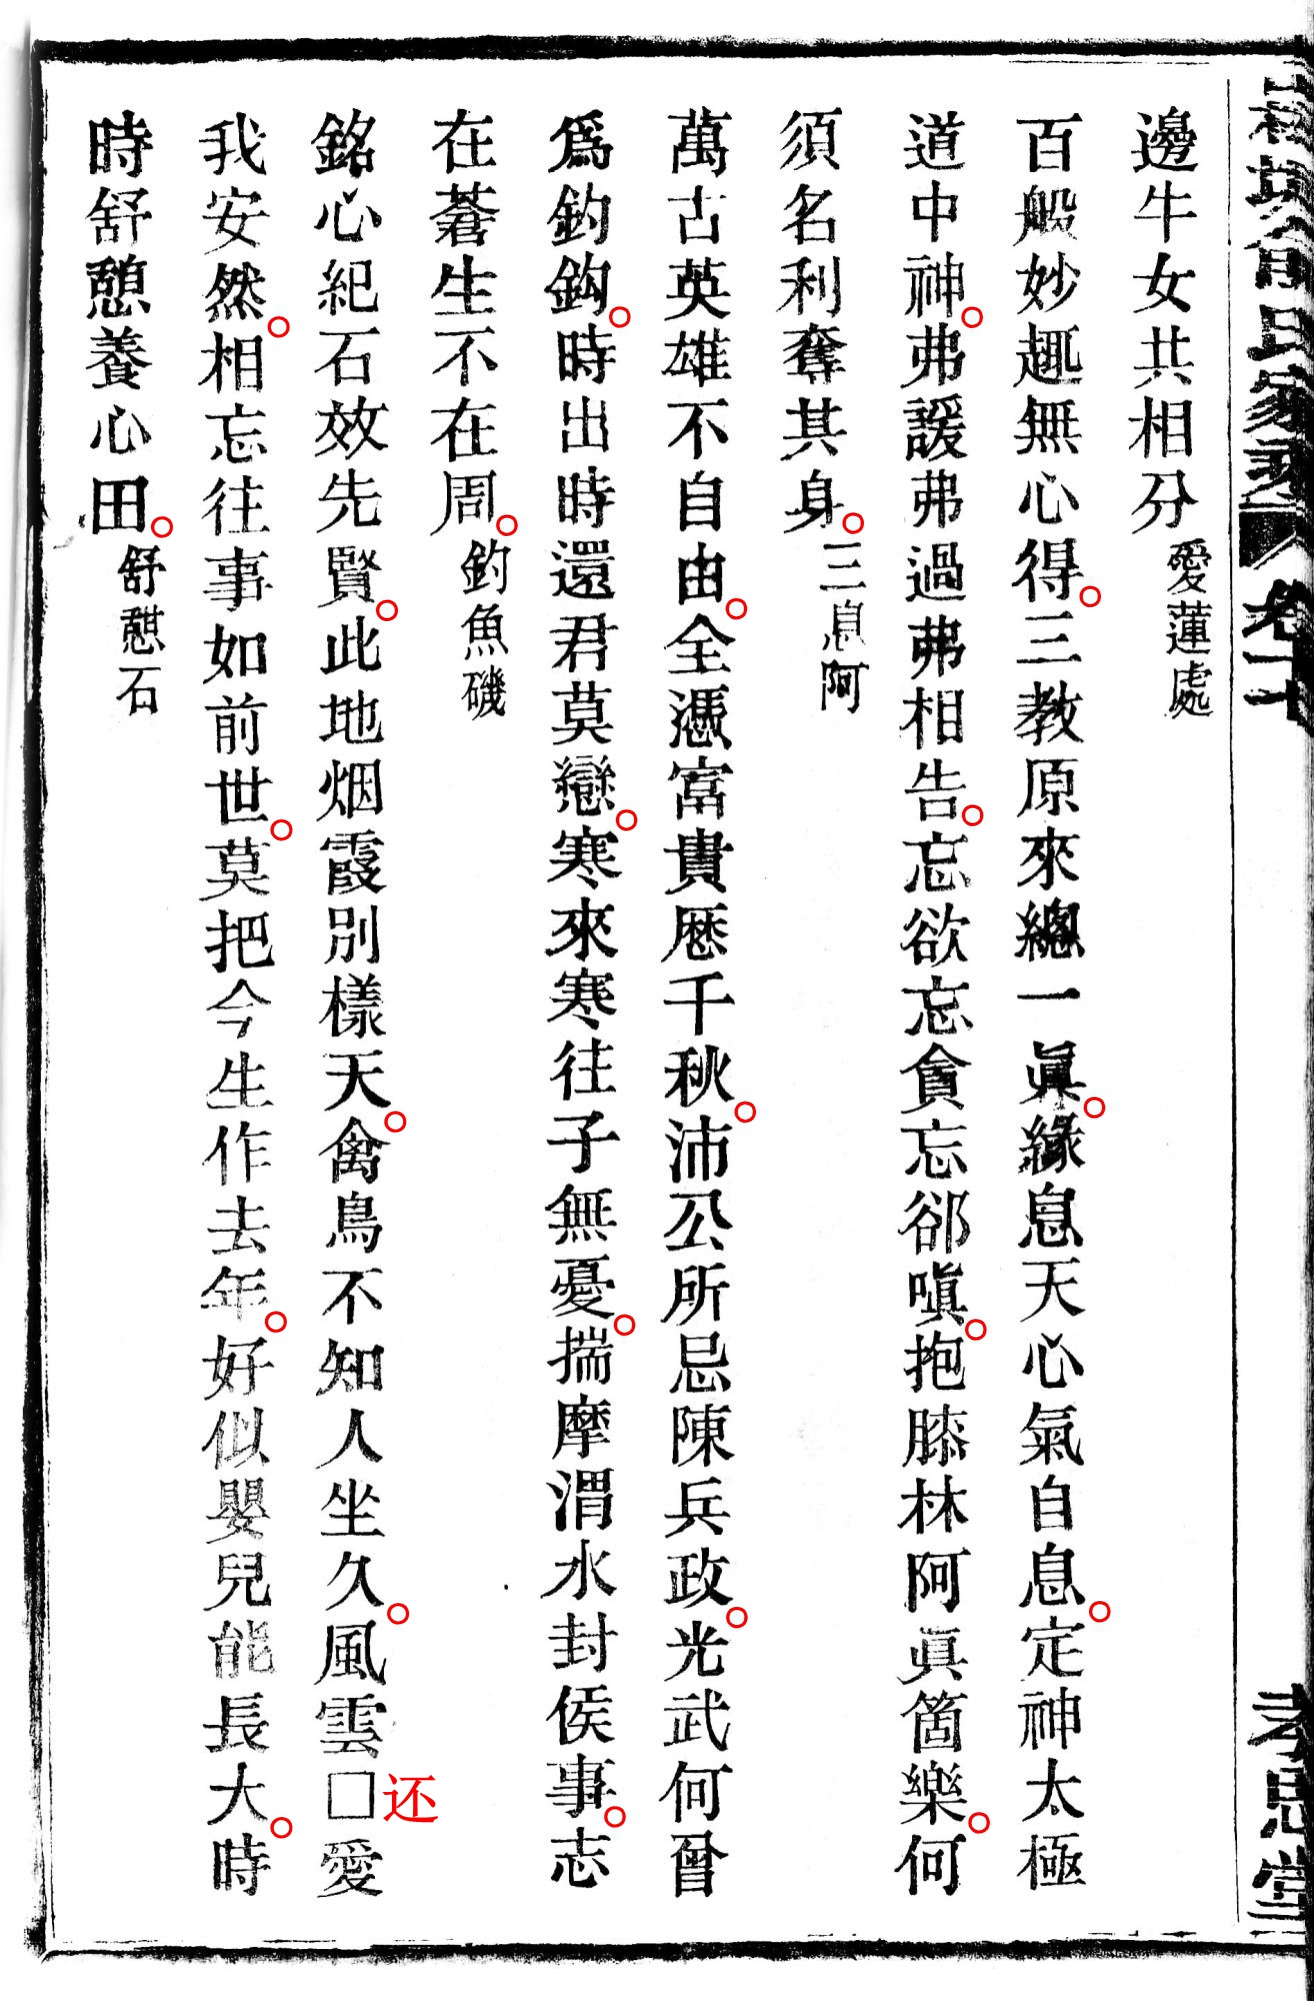 邊牛女共相分 愛蓮處
百般妙趣無心得。三教原來總一眞。緣息天心氣自息。定神太極
道中神。弗諼弗過弗相告。忘欲忘貪忘郤嗔。抱膝林阿眞箇樂。何
須名利奪其身。三息阿
萬古英雄不自由。全憑富貴歷千秋。沛公所忌陳兵政。光武何曾
爲釣鈎。時出時還君莫戀。寒來寒往子無憂。揣摩渭水封侯事。志
在蒼生不在周。釣魚磯
銘心紀石效先賢。此地烟霞別樣天。禽鳥不知人坐久。風雲□还愛
我安然。相忘往事如前世。莫把今生作去年。好似嬰兒能長大。時
時舒憩養心田。舒憩石
卷十
孝思堂